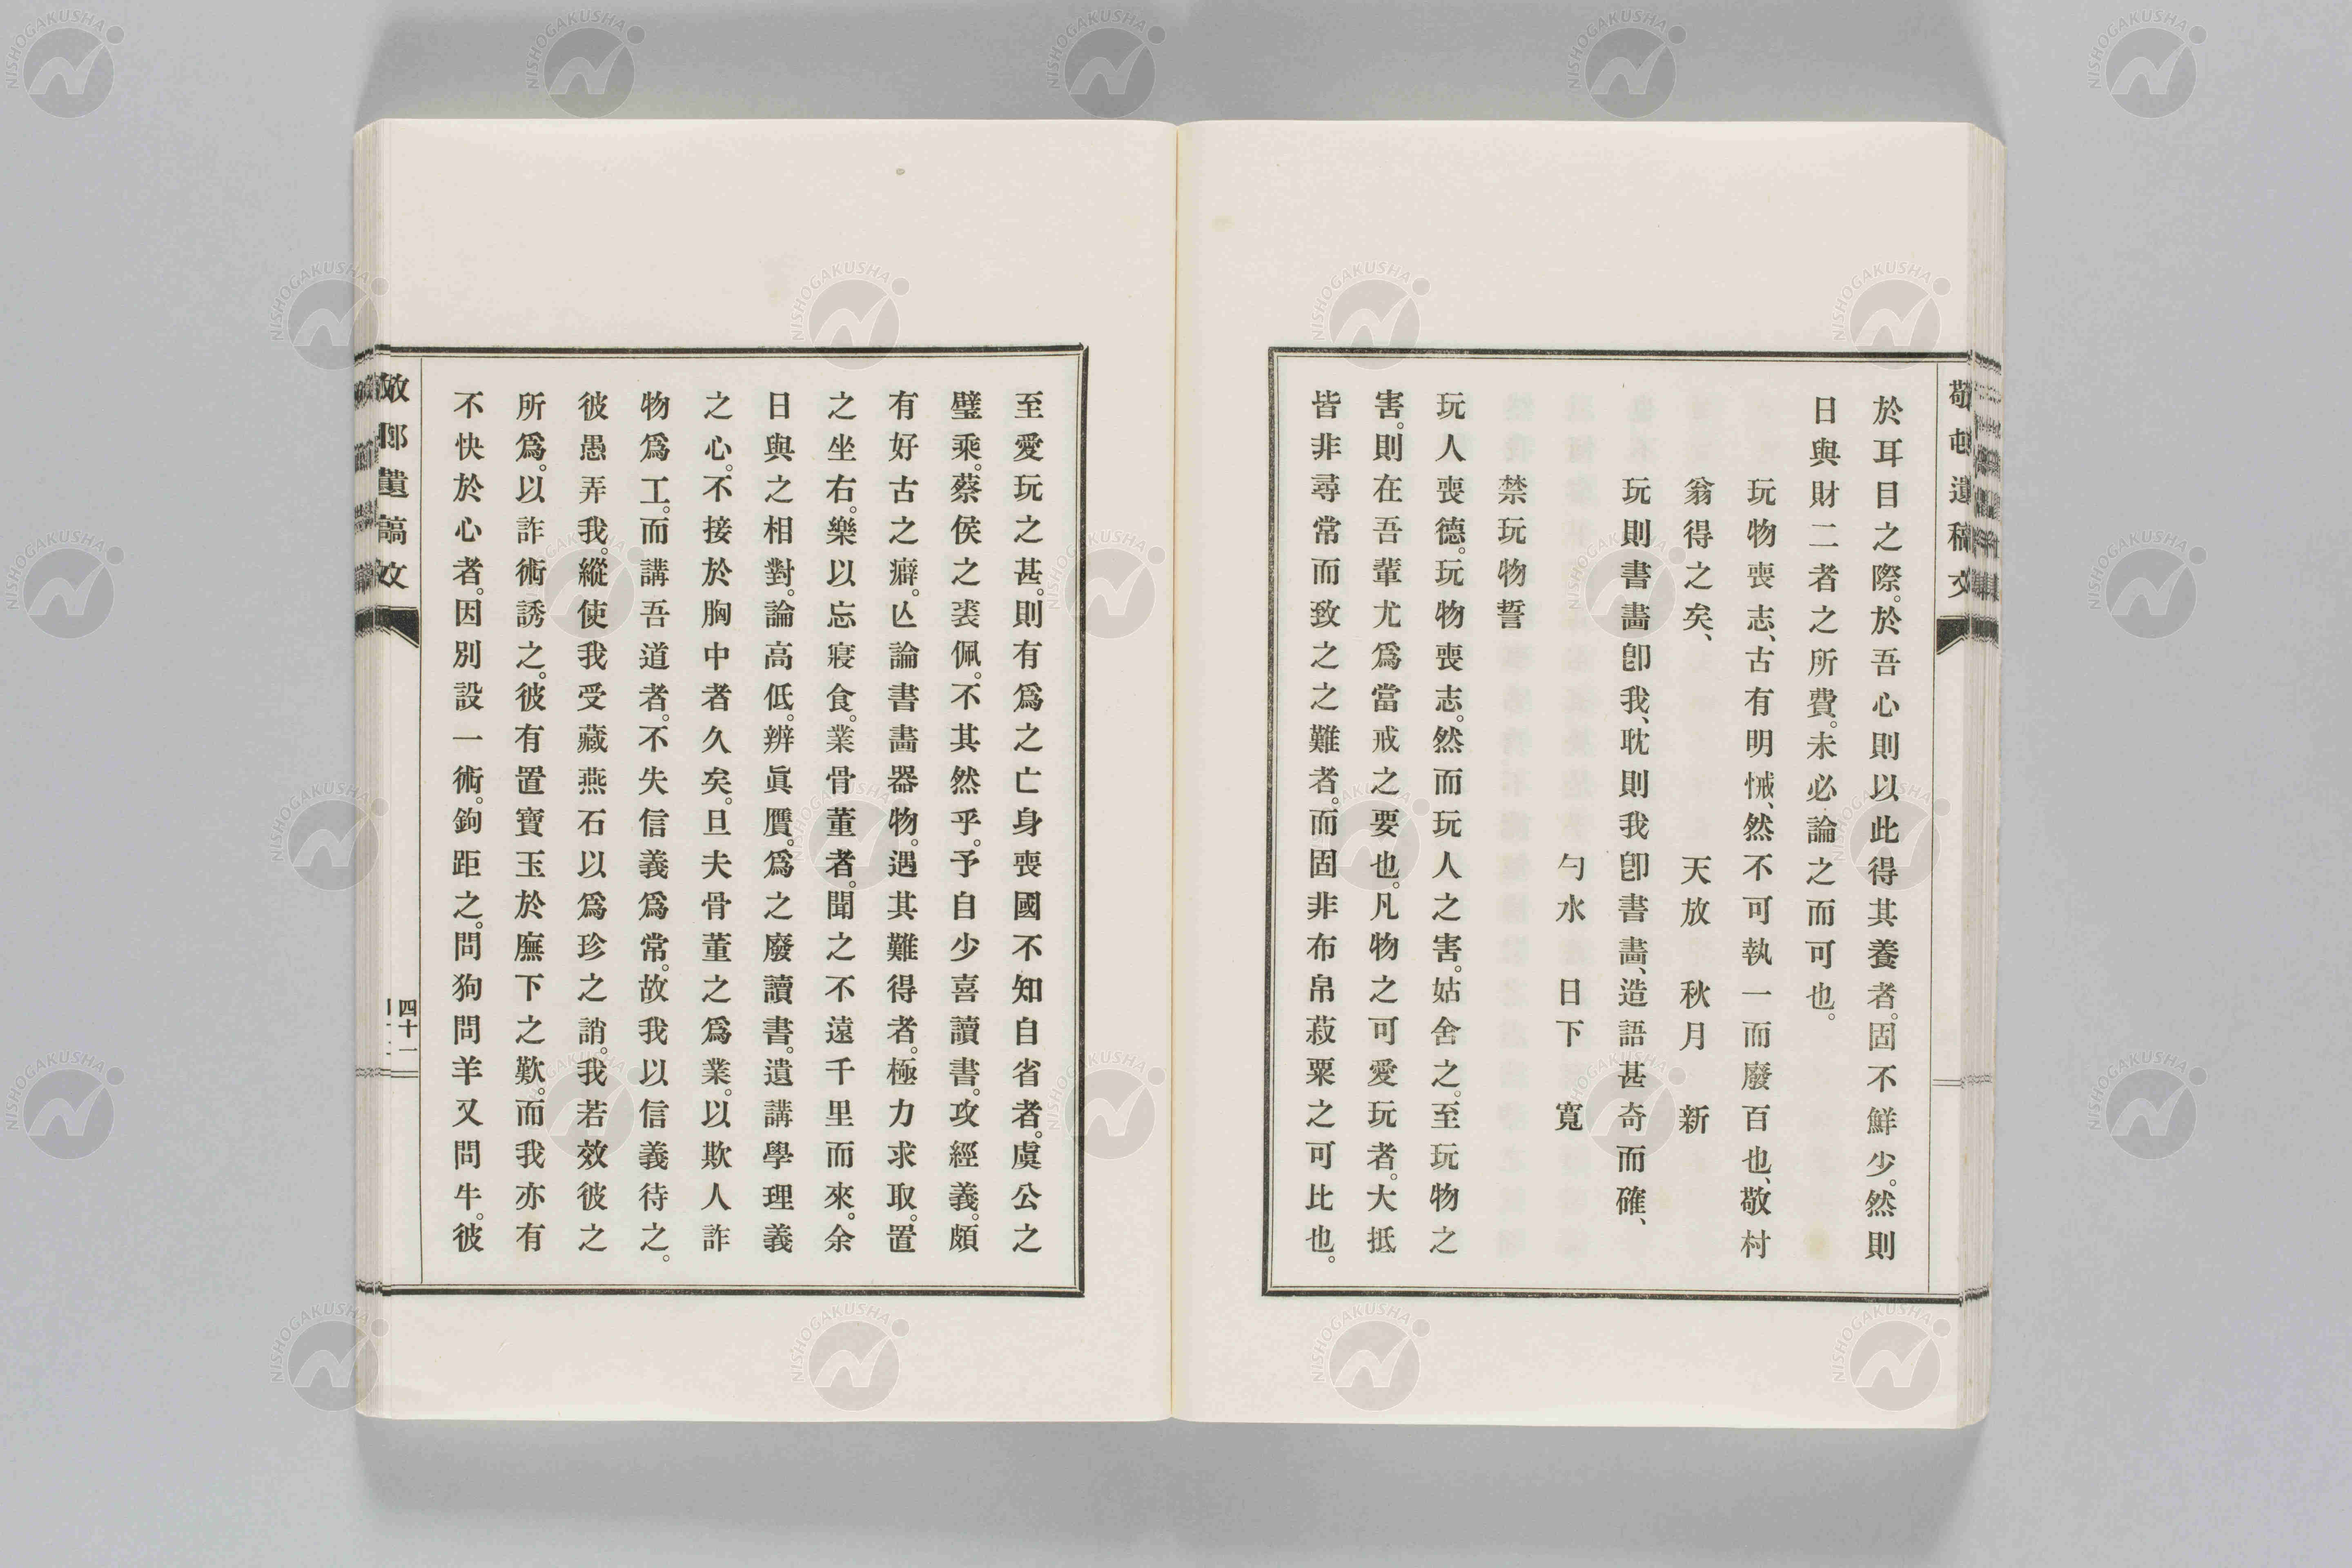 於耳目之際。於吾心則以此得其養者。固不鮮少。然則
日與財二者之所費。未必論之而可也。
玩物喪志、古有明悈、然不可執一而廢百也、敬村
翁得之矣、　天放　秋月　新
玩則書畵卽我、耽則我卽書畵、造語甚奇而確、
勺水　日下　寬
禁玩物誓
玩人喪德。玩物喪志。然而玩人之害。姑舍之。至玩物之
害。則在吾輩尤爲當戒之要也。凡物之可愛玩者。大抵
皆非尋常而致之之難者。而固非布帛菽粟之可比也。
至愛玩之甚。則有爲之亡身喪國不知自省者。虞公之
璧乘。蔡侯之裘佩。不其然乎。予自少喜讀書。攻經義。頗
有好古之癖。亾論書畵器物。遇其難得者。極力求取。置
之坐右。樂以忘寢食。業骨董者。聞之不遠千里而來。余
日與之相對。論高低。辨眞贋。爲之廢讀書。遺講學理義
之心。不接於胸中者久矣。且夫骨董之爲業。以欺人詐
物爲工。而講吾道者。不失信義爲常。故我以信義待之。
彼愚弄我。縱使我受藏燕石以爲珍之誚。我若效彼之
所爲。以詐術誘之。彼有置寶玉於廡下之歎。而我亦有
不快於心者。因別設一術。鉤距之。問狗問羊又問牛。彼
四十一
NISHOGAKUSHA